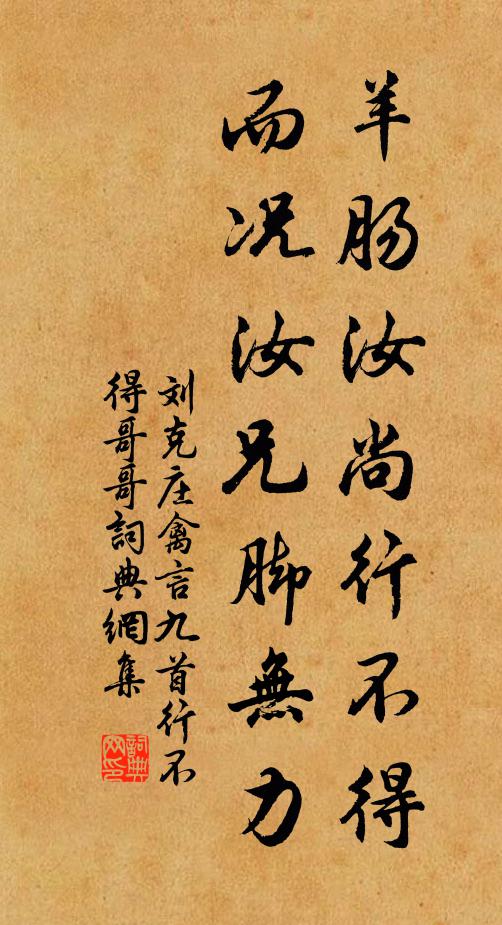 羊肠汝尚行不得
而况汝兄脚無力
刘克庄禽言九首行不
得哥哥詞典網集
詞典
网印